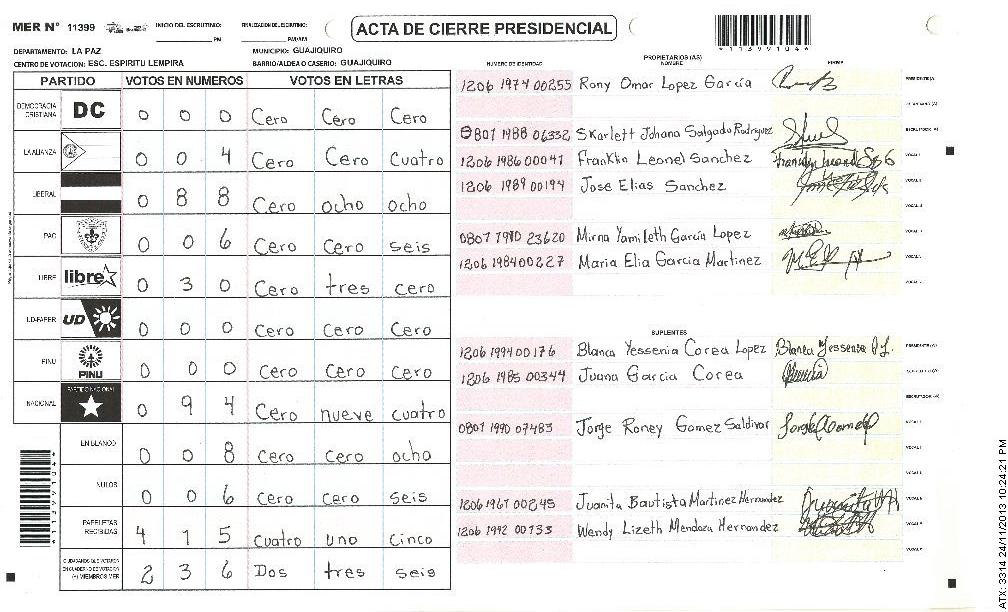 MER N° 11399
INICIO DEL ESCRUTINIO:
PM
FINALIZACION DEL ESCRUTINIO:
PM/AM
ACTA DE CIERRE PRESIDENCIAL
1139910 4
DEPARTAMENTO: LA PAZ
MUNICIPIO: GUAJIQUIRO
CENTRO DE VOTACION: ESC. ESPIRITU LEMPIRA
BARRIO/ALDEA O CASERIO: GUAJIQUIRO
PARTIDO VOTOS EN NUMEROS VOTOS EN LETRAS
DEMOCRACIA CRISTIANA DC 0 0 0 Cero Cero Cero
LA ALIANZA 0 0 4 Cero Cero Cuatro
LIBERAL 0 8 8 Cero ocho ocho
PAC 0 0 6 Cero Cero seis
LIBRE libre 0 3 0 Cero tres cero
UD-FAPER UD 0 0 0 Cero Cero Cero
PINU PINU 0 0 0 Cero Cero Cero
NACIONAL PARTIDO NACIONAL 0 9 4 Cero nueve cuatro
EN BLANCO 0 0 8 Cero Cero ocho
NULOS 0 0 6 Cero Cero seis
PAPELETAS RECIBIDAS 4 1 5 Cuatro uno Cinco
CIUDADANOS QUE VOTARON EN CUADERNO DE VOTACION (+) MIEMBROS MER 2 3 6 Dos tres seis
PROPIETARIOS (AS)
NUMERO DE IDENTIDAD NOMBRE FIRMA
1206 1974 00255 Rony Omar Lopez García PRESIDENTE(A)
SECRETARIO (A)
0801 1988 06332 Skarlett Johana Salgado Rodriguez ESCRUTADOR (A)
1206 1986 00041 Franklin Leonel Sanchez VOCAL I
1206 1989 00194 Jose Elias Sanchez
0807 1980 23620 Mirna Yamileth García Lopez
1206 1984 00227 Maria Elia Garcia Martinez
SUPLENTES
1206 1994 00176 Blanca Yessenia Corea Lopez Blanca Yessenia PRESIDENTE (A)
1206 1985 00344 Juana Garcia Corea
ESCRUTADOR (A)
0801 1990 07483 Jorge Roney Gomez Saldivar
1206 1967 00245 Juanita Bautista Martinez Hernandez
1206 1992 00733 Wendy Lizeth Mendoza Hernandez
ATX: 3314 24/11/2013 10:24:21 PM